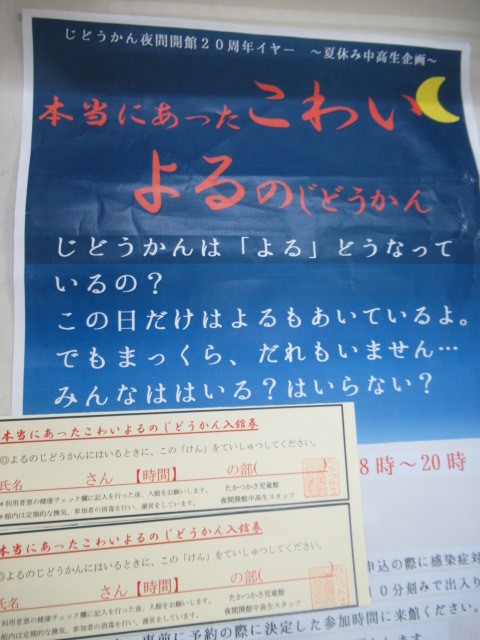 じどうかん夜間開館20周年イヤー ～夏休み中高生企画～
本当にあったこわい
よるのじどうかん
じどうかんは「よる」どうなって
いるの？
この日だけはよるもあいているよ。
でもまっくら、だれもいません…
みんなははいる？はいらない？
8時～20時
本当にあったこわいよるのじどうかん入館券
◎よるのじどうかんにはいるときに、この「けん」をていしゅつしてください。
氏名 さん【時間】 の部( )
＊利用者票の健康チェック欄に記入を行った後、入館をお願いします。
＊館内は定期的な換気、参加者の消毒を行い、運営をしています。
たかつかさ児童館
夜間開館中高生スタッフ
本当にあったこわいよるのじどうかん入館券
◎よるのじどうかんにはいるときに、この「けん」をていしゅつしてください。
氏名 さん【時間】 の部( )
＊利用者票の健康チェック欄に記入を行った後、入館をお願いします。
＊館内は定期的な換気、参加者の消毒を行い、運営をしています。
たかつかさ児童館
夜間開館中高生スタッフ
申込の際に感染症対
0分刻みで出入り
事前に予約の際に決定した参加時間に来館ください。